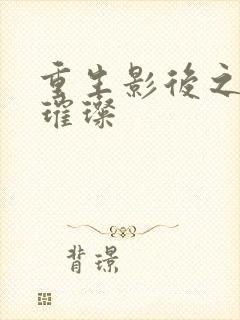 重生影後之
璀璨
背璟